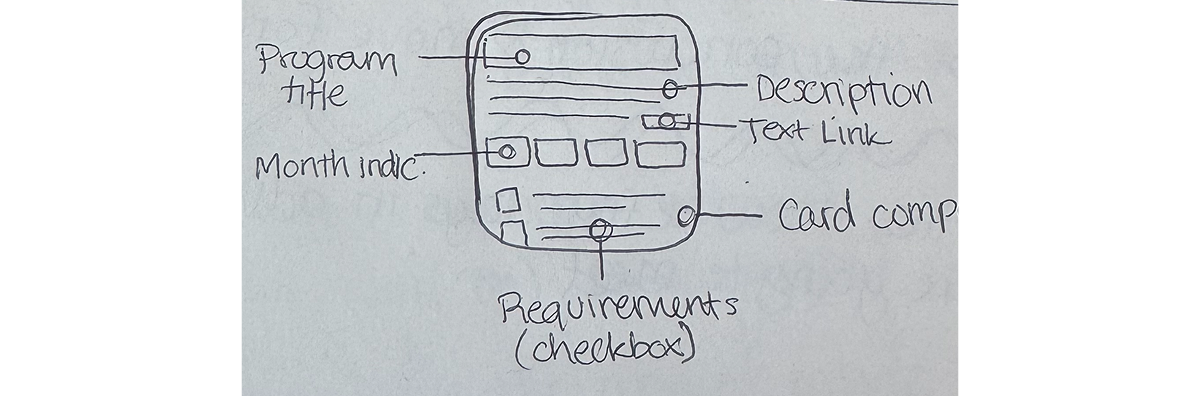 Program
title
Description
Text Link
Month indic.
Card comp
Requirements
(checkbox)